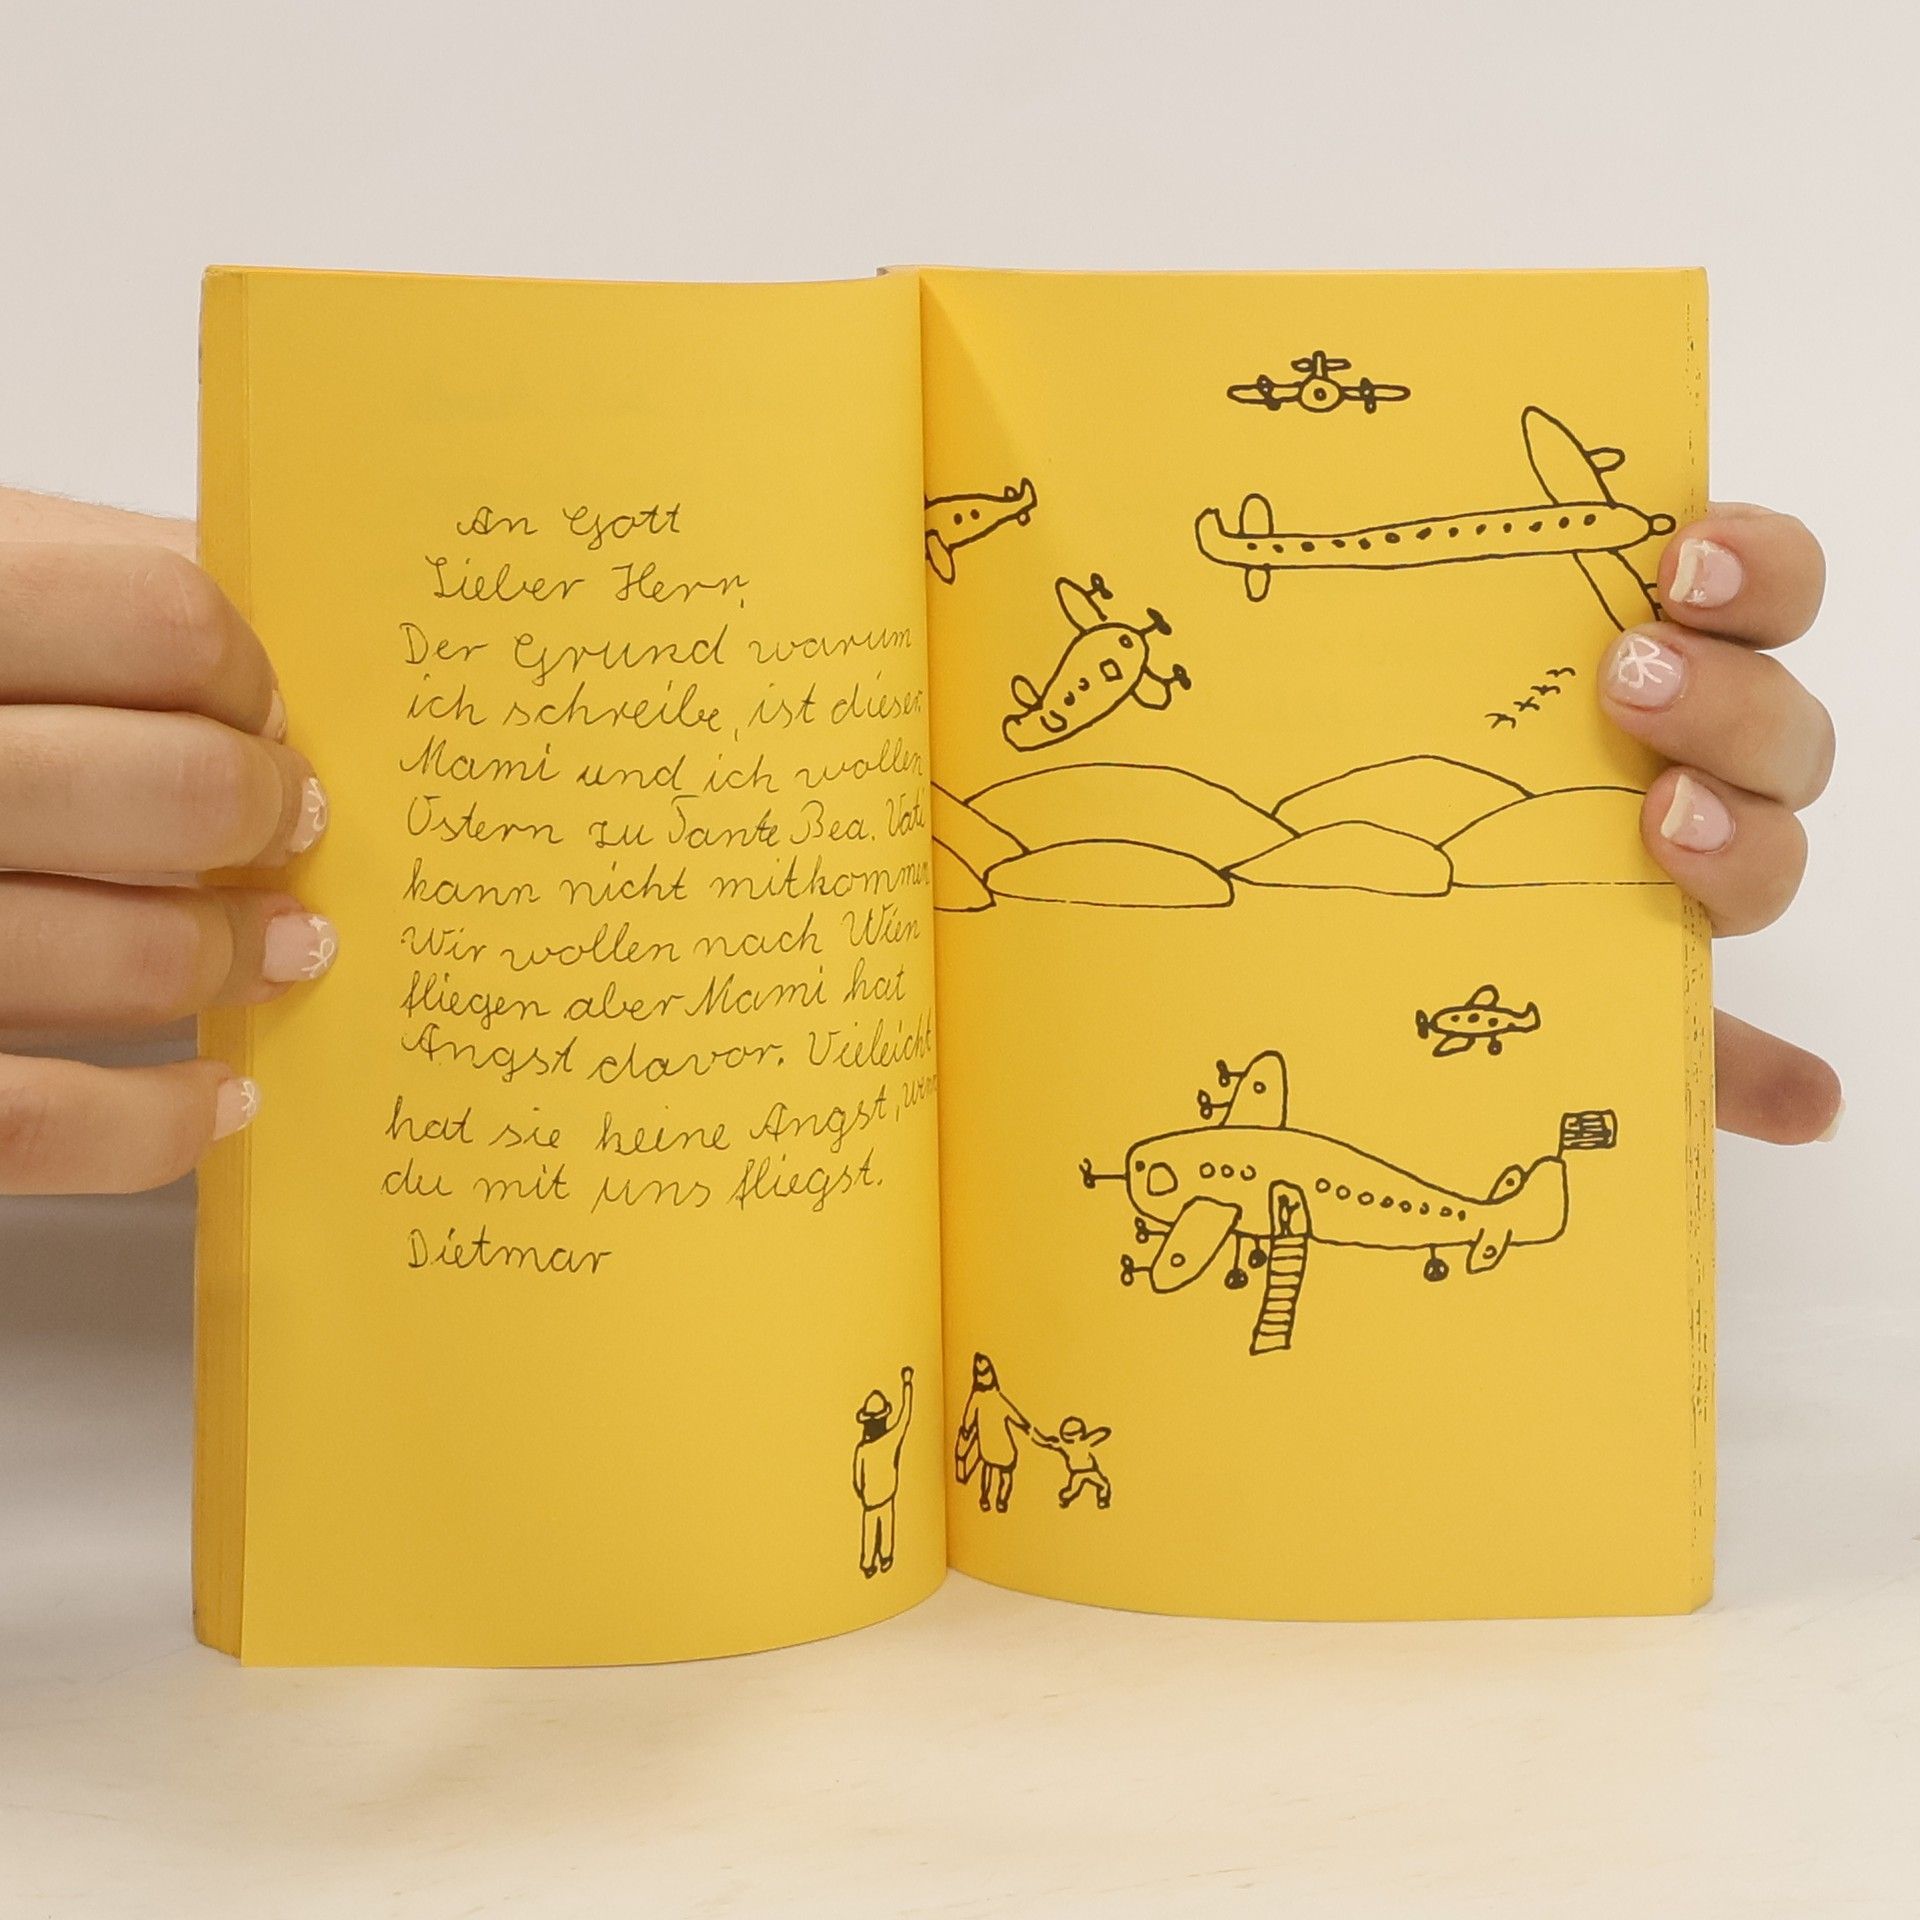 An Gott
Lieber Herr,
Der Grund warum
ich schreibe, ist dieser
Mami und ich wollen
Ostern zu Tante Bea. Vati
kann nicht mitkommen
Wir wollen nach Wien
fliegen aber Mami hat
Angst davor. Vieleicht
hat sie keine Angst, wenn
du mit uns fliegst.
Dietmar